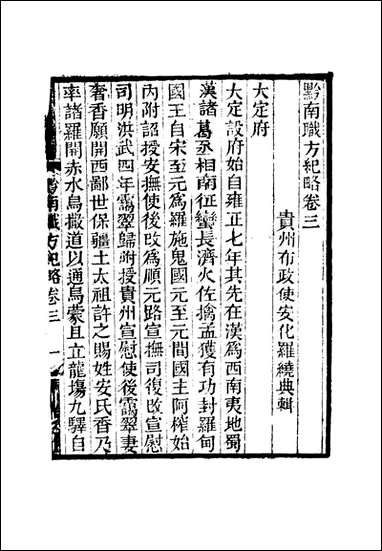 黔南職方紀略卷三
貴州布政使安化羅繞典輯
大定府
大定設府始自雍正七年其先在漢為西南夷地蜀
漢諸葛丞相南征蠻長濟火佐擒孟獲有功封羅甸
國王自宋至元為羅施鬼國至元間國主阿榨始
內附詔授安撫使後改為順元路宣撫司復改宣慰
司明洪武四年靄翠歸附授貴州宣慰使後靄翠妻
奢香願開西鄙世保疆土太祖許之賜姓安氏香乃
率諸羅開赤水烏撒道以通烏蒙且立龍場九驛自
黔南職方紀略卷三 一